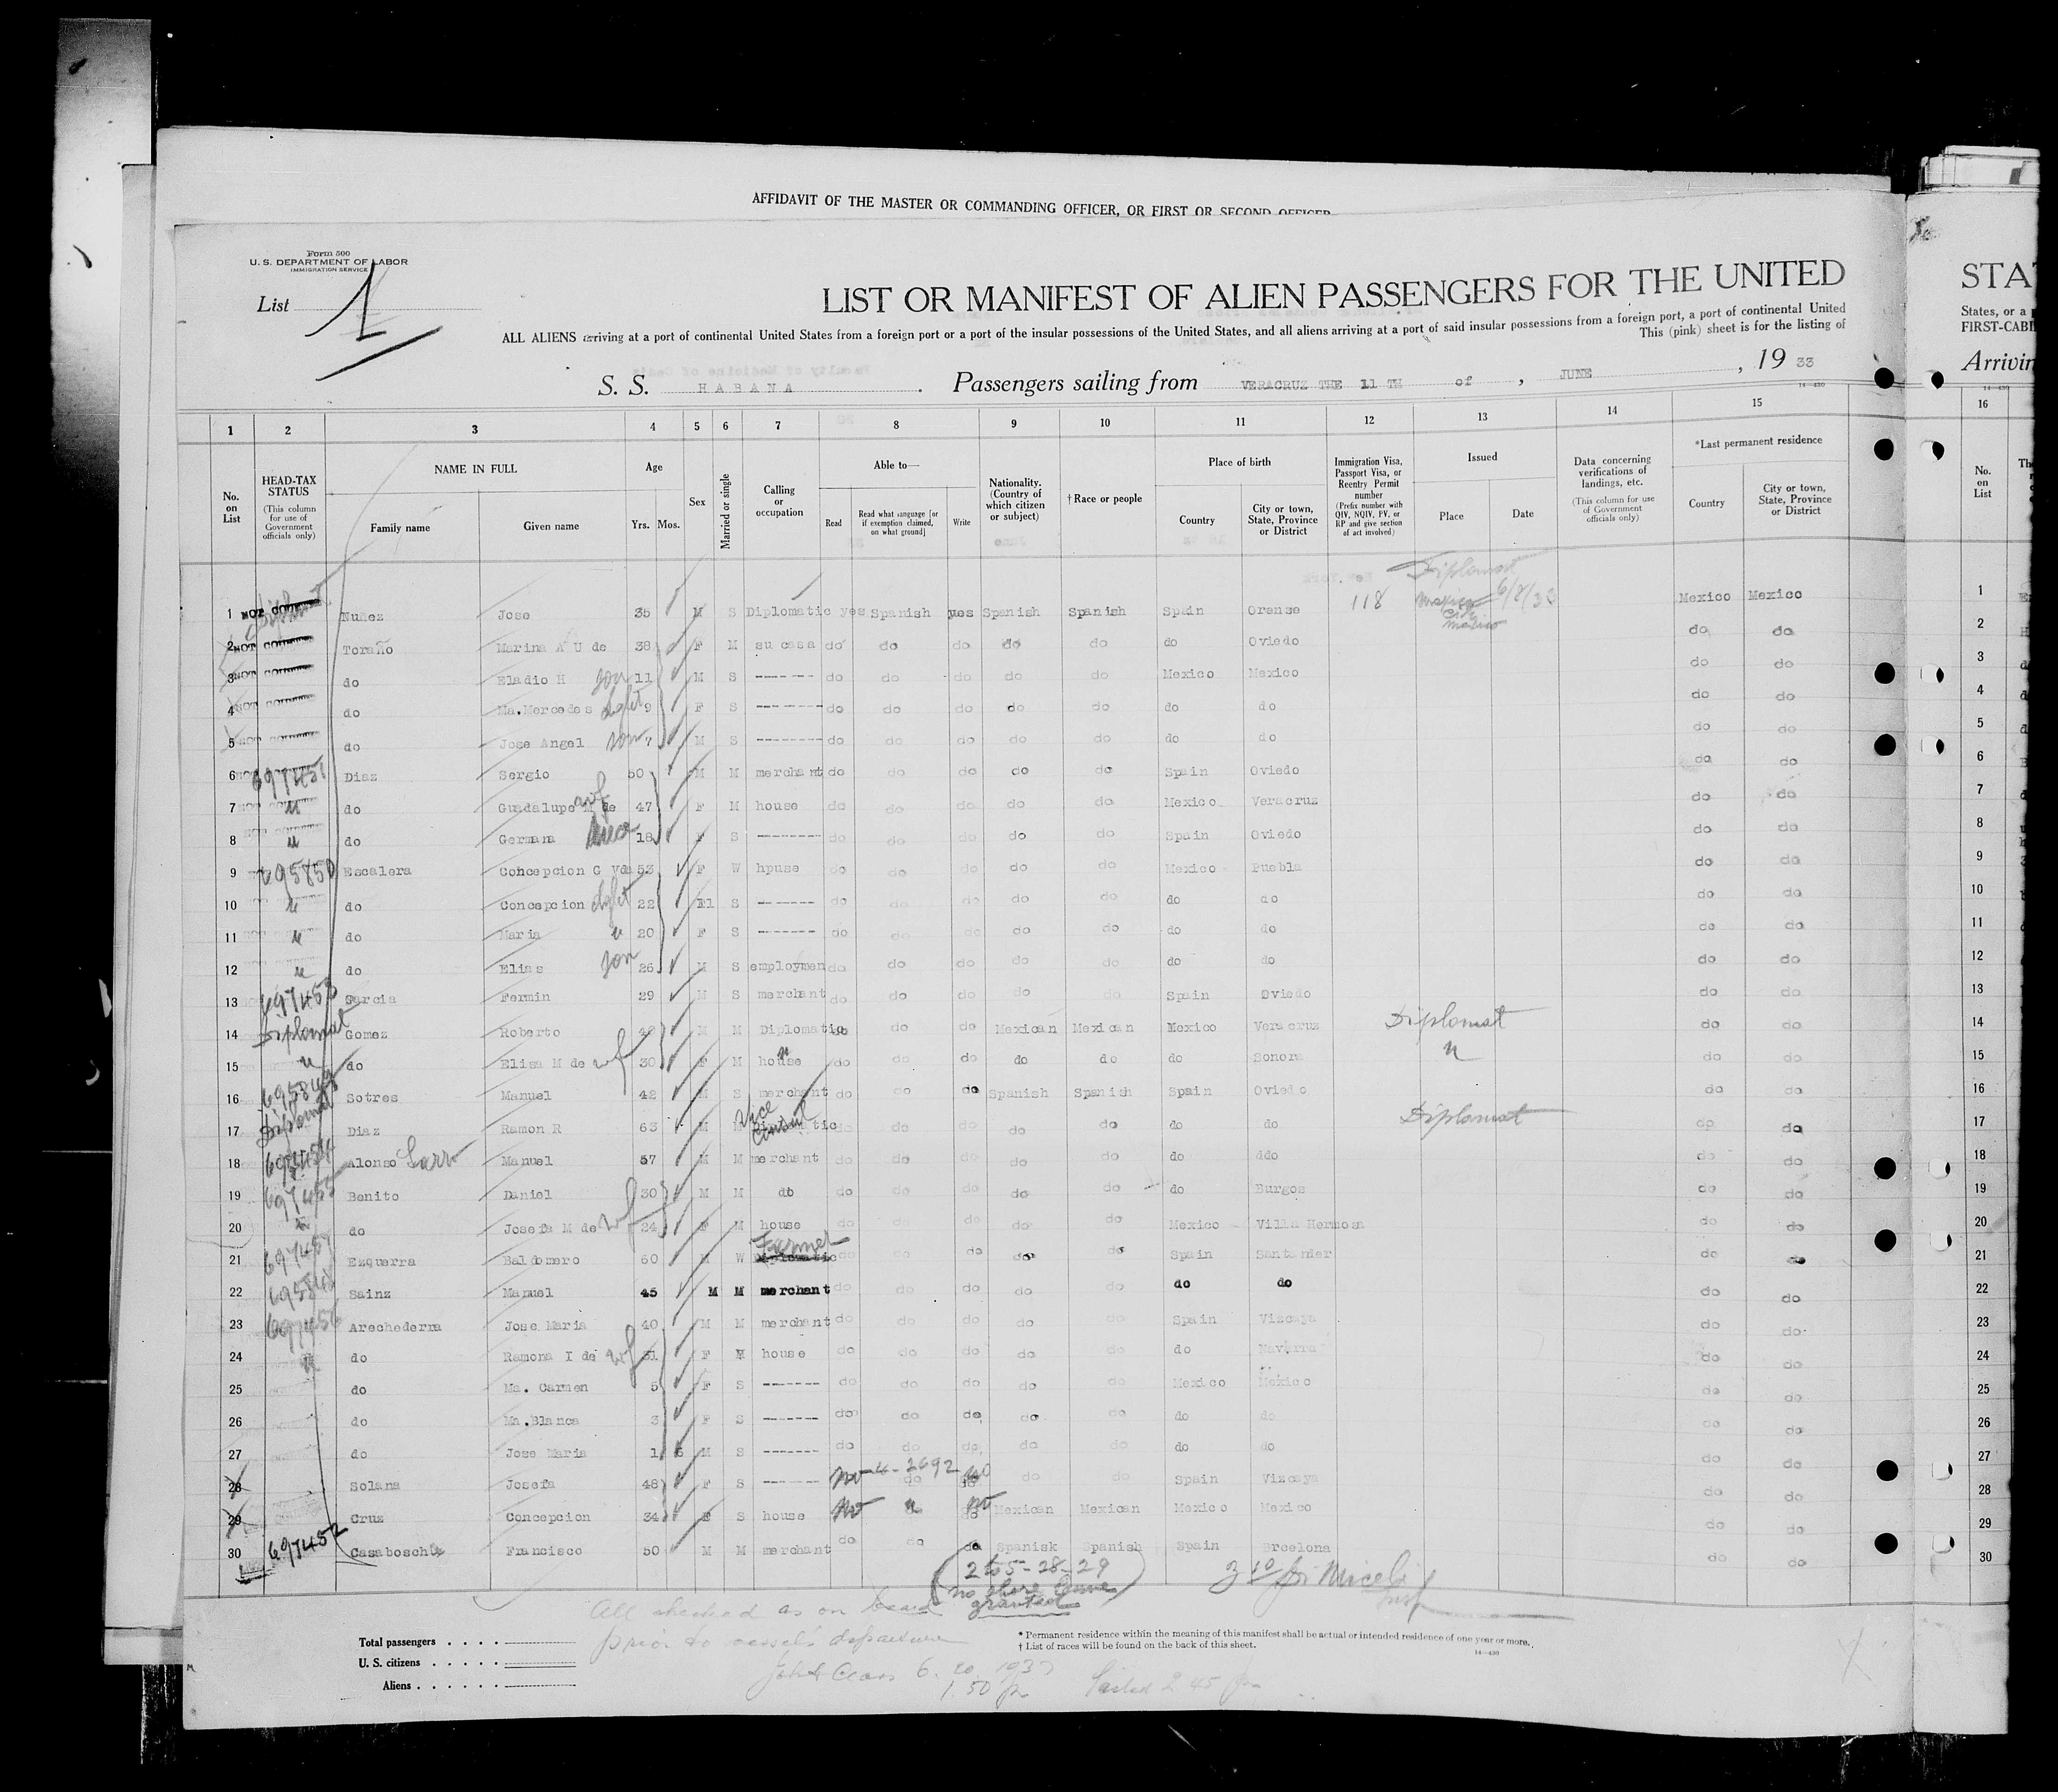 AFFIDAVIT OF THE MASTER OR COMMANDING OFFICER, OR FIRST OR SECOND OFFICER
Form 500
U. S. DEPARTMENT OF LABOR
IMMIGRATION SERVICE
List 1
LIST OR MANIFEST OF ALIEN PASSENGERS FOR THE UNITED
STA
ALL ALIENS arriving at a port of continental United States from a foreign port or a port of the insular possessions of the United States, and all aliens arriving at a port of said insular possessions from a foreign port, a port of continental United
States, or a
This (pink) sheet is for the listing of
FIRST-CABI
S. S. HABANA . Passengers sailing from VERACRUZ THE 11 TH of , JUNE , 19 33
Arrivin
1 2 3 4 5 6 7 8 9 10 11 12 13 14 15 16
No. on List
HEAD-TAX STATUS (This column for use of Government officials only)
NAME IN FULL
Family name Given name
Age Yrs. Mos.
Sex
Married or single
Calling or occupation
Able to—
Read Read what language [or if exemption claimed, on what ground] Write
Nationality. (Country of which citizen or subject)
† Race or people
Place of birth
Country City or town, State, Province or District
Immigration Visa, Passport Visa, or Reentry Permit number (Prefix number with QIV, NQIV, PV, or RP and give section of act involved)
Issued
Place Date
Data concerning verifications of landings, etc. (This column for use of Government officials only)
*Last permanent residence
Country City or town, State, Province or District
No. on List
Diplomat
1 Nuñez Jose 35 M S Diplomatic yes Spanish yes Spanish Spanish Spain Orense 118 Mexico City Mexico 6/8/33 Mexico Mexico 1
2 Toraño Marina A U de 38 F M su casa do do do do do do Oviedo do do 2
3 do Eladio H son 11 M S ------- do do do do do Mexico Mexico do do 3
4 do Ma.Mercedes dght 9 F S -------- do do do do do do do do do 4
5 do Jose Angel son 7 M S -------- do do do do do do do do do 5
6 697451 Diaz Sergio 50 M M merchant do do do do do Spain Oviedo do do 6
7 " do Guadalupe M de wf 47 F M house do do do do do Mexico Veracruz do do 7
8 " do Germana niece 18 F S -------- do do do do do Spain Oviedo do do 8
9 695850 Escalera Concepcion G Vda 53 F W hpuse do do do do do Mexico Puebla do do 9
10 " do Concepcion dght 22 F S ------- do do do do do do do do do 10
11 " do Maria " 20 F S ------- do do do do do do do do do 11
12 " do Elias son 26 M S employmen do do do do do do do do do 12
13 697453 Garcia Fermin 29 M S merchant do do do do do Spain Oviedo do do 13
14 Diplomat Gomez Roberto M M Diplomatic do do do Mexican Mexican Mexico Veracruz Diplomat do do 14
15 " do Elisa M de wf 30 F M house " do do do do do do Sonora " do do 15
16 Sotres Manuel 42 M S merchant do do do Spanish Spanish Spain Oviedo do do 16
17 Diplomat Diaz Ramon R 63 M M Vice Consul do do do do do do do Diplomat do do 17
18 Alonso Manuel 57 M M merchant do do do do do do ddo do do 18
19 697455 Benito Daniel 30 M M do do do do do do do Burgos do do 19
20 " do Josefa M de wf 24 F M house do do do do do Mexico Villa Hermosa do do 20
21 697457 Ezquerra Baldomero 60 M W Farmer Diplomatic do do do do do Spain Santander do do 21
22 Sainz Manuel 45 M M merchant do do do do do do do do do 22
23 697456 Arechederra Jose Maria 40 M M merchant do do do do do Spain Vizcaya do do 23
24 " do Ramona I de wf 31 F M house do do do do do do Navarra do do 24
25 do Ma. Carmen 5 F S ------- do do do do do Mexico Mexico do do 25
26 do Ma.Blanca 3 F S ------- do do do do do do do do do 26
27 do Jose Maria 1 6 M S ------- do do do do do do do do do 27
28 Solana Josefa 48 F S ------- no do no do do Spain Vizcaya do do 28
29 Cruz Concepcion 34 F S house no " no Mexican Mexican Mexico Mexico do do 29
30 697452 Casabosch Francisco 50 M M merchant do do do Spanisk Spanish Spain Brcelona do do 30
2 to 5-28-29
no shore leave
granted
All checked as on board
prior to vessel's departure
6. 20. 1933
1.50 p
Sailed 2 45 pm
Total passengers . . . .
U. S. citizens . . . . . .
Aliens . . . . . . .
* Permanent residence within the meaning of this manifest shall be actual or intended residence of one year or more.
† List of races will be found on the back of this sheet.
14—430